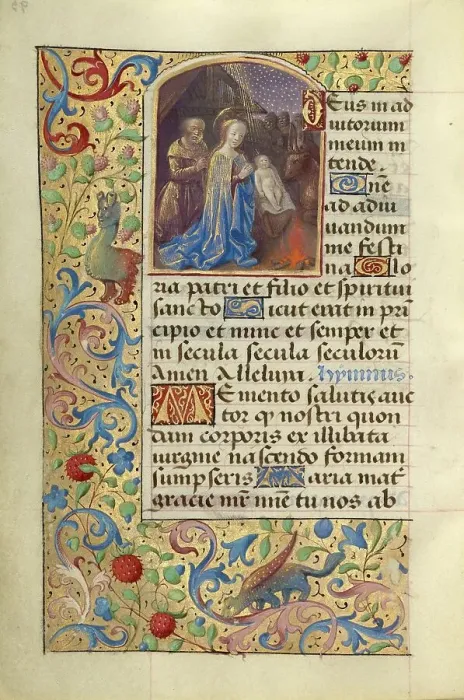 Deus in ad
iutorium
meum in
tende.
Dñe
ad adiu
uandum
me festi
na Glo
ria patri et filio et spiritui
sancto Sicut erat in prī
cipio et nunc et semper et
in secula secula seculorū
Amen Alleluya. hympnus.
Memento salutis auc
tor qͥ nostri quon
dam corporis ex illibata
uirgine nascendo formam
sumpseris Maria mat͛
gracie mr̄ mīe tu nos ab